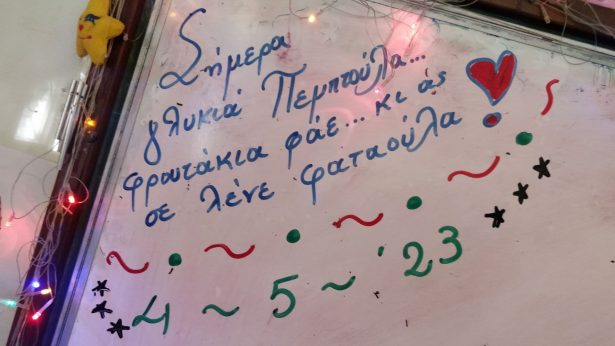 Σήμερα
γλυκιά Πεμπτούλα...
φρουτάκια φάε... κι άς
σε λένε φαταούλα!
~ • ~ • ~ • ~ • ~
*** 4 ~ 5 ~ '23 ***